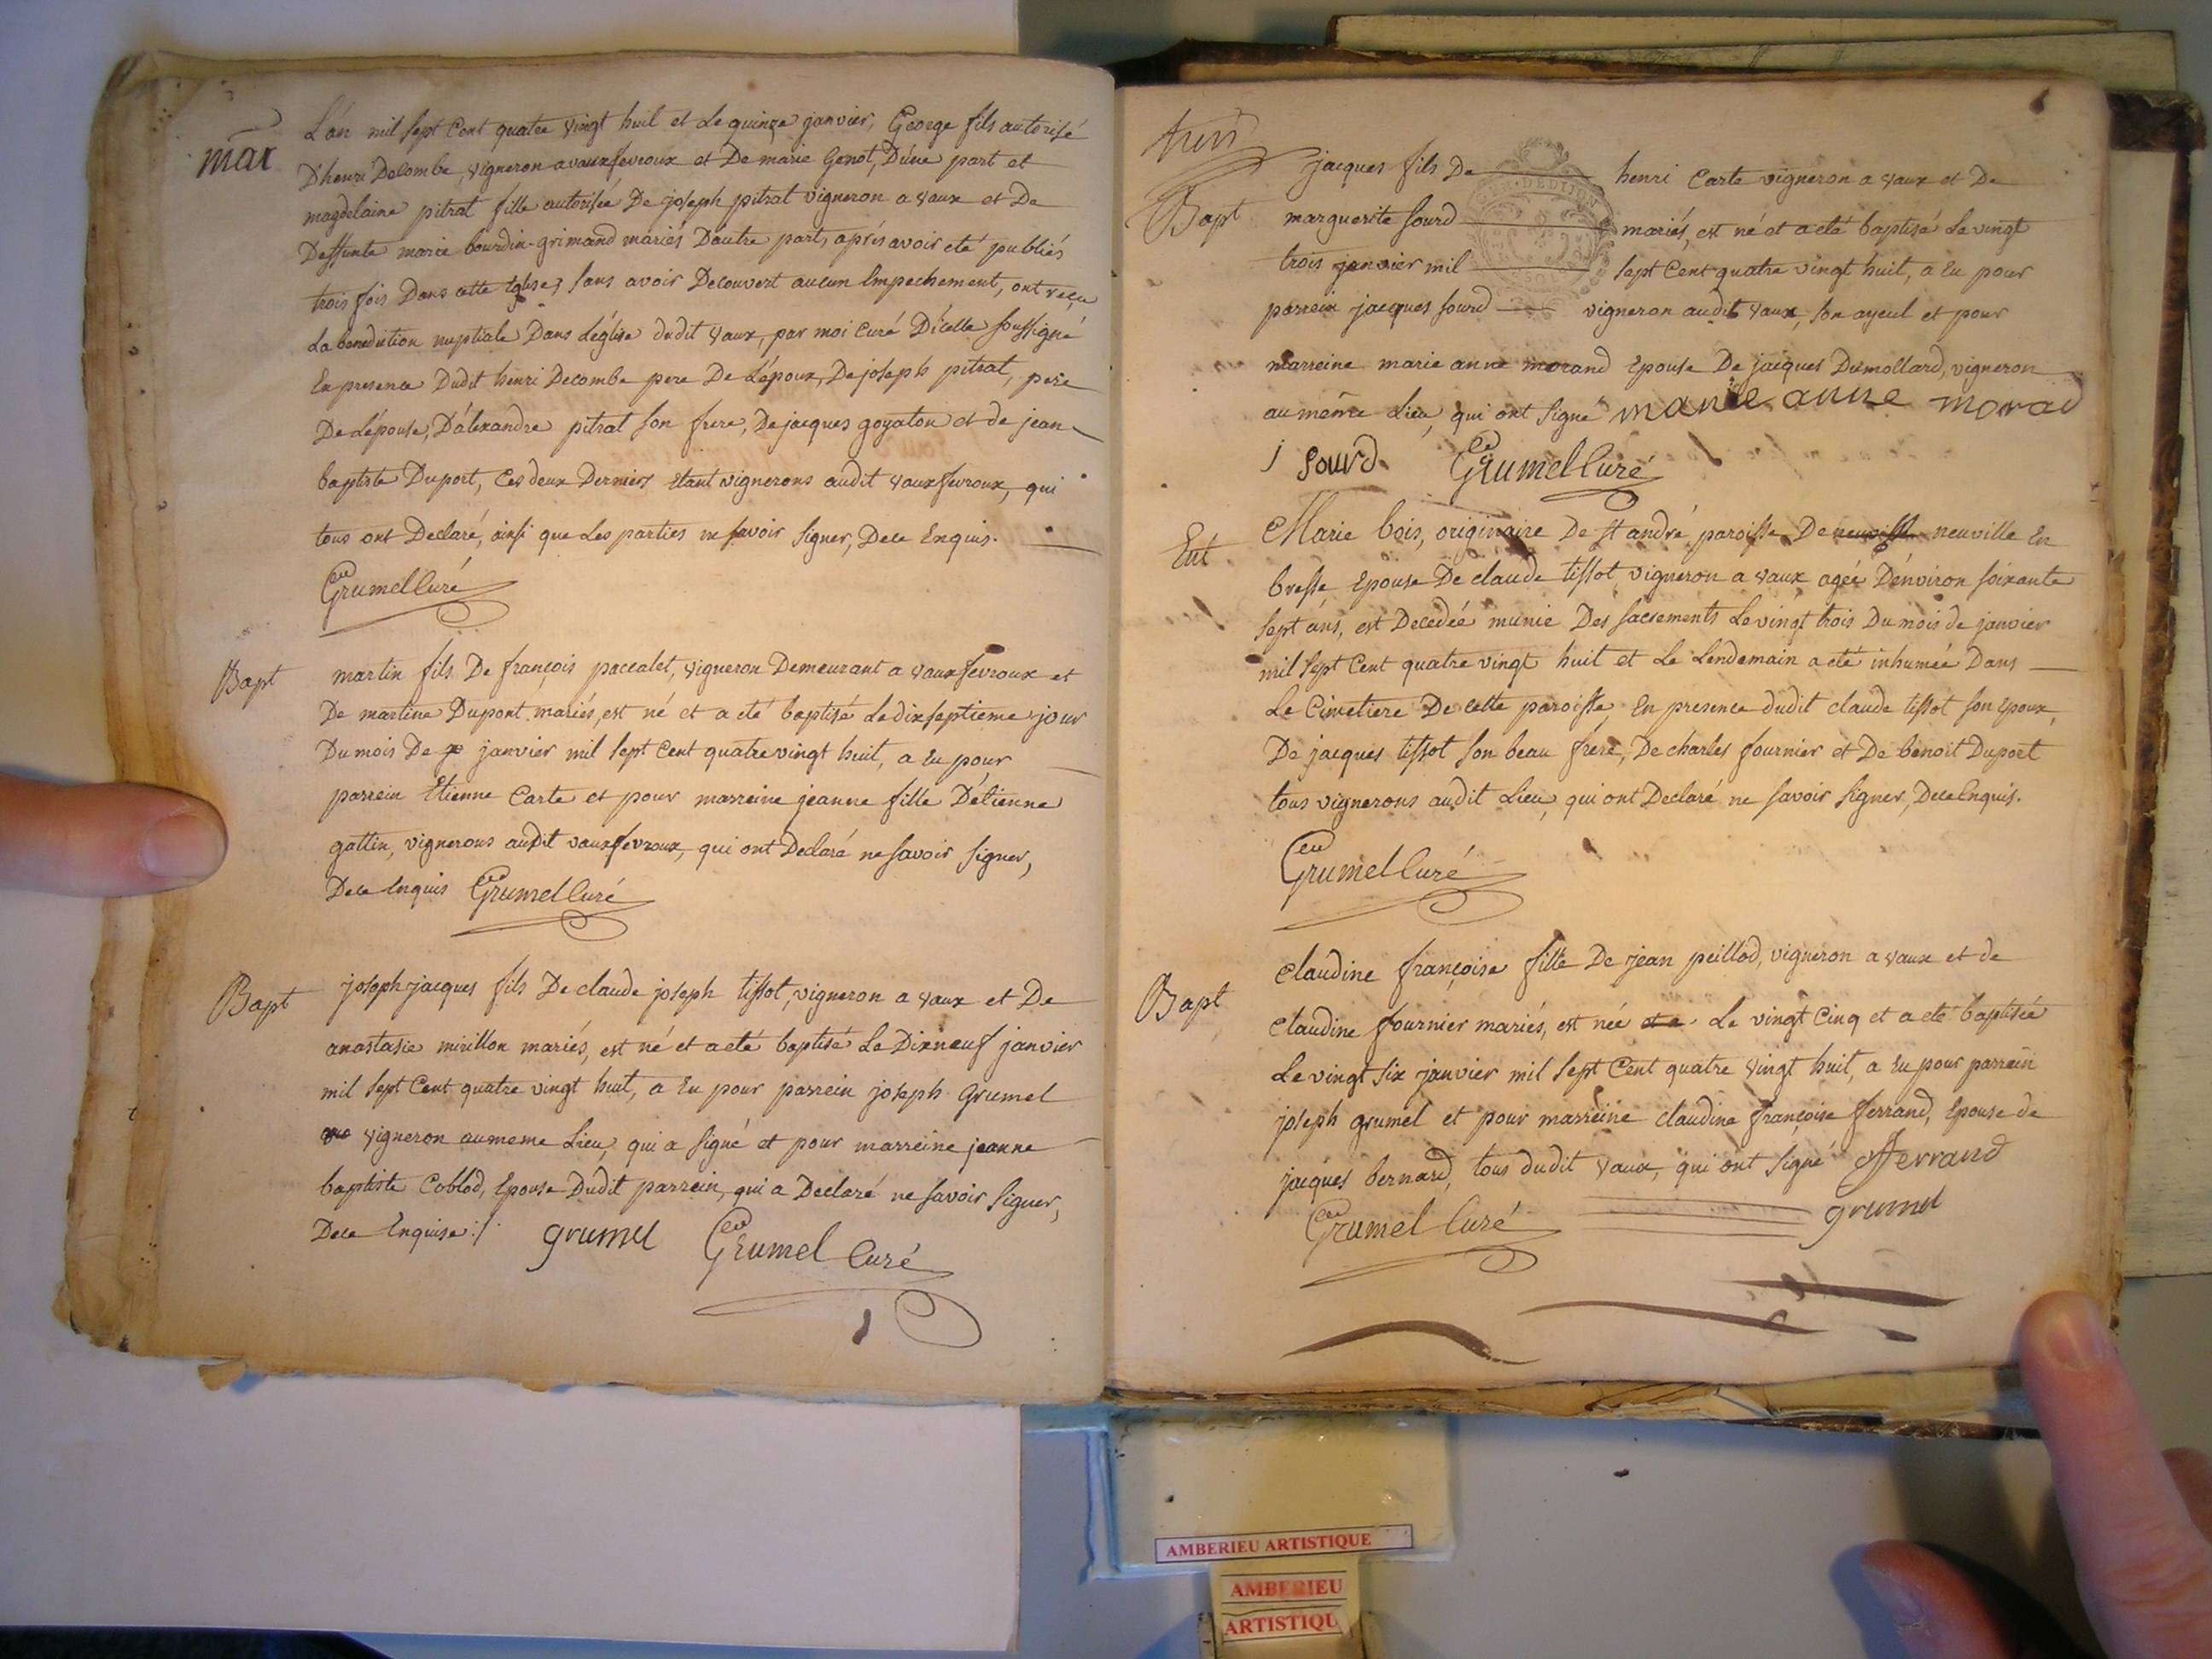 mar
L'an mil sept Cent quatre vingt huit et Le quinze janvier, George fils autorisé
D'henri Decombe, vigneron a vauxfevroux et De marie Genot, D'une part et
magdelaine pitrat fille autorisée De joseph pitrat vigneron a vaux et De
Deffunte marie bourdin-grimand mariés D'autre part, aprés avoir eté publiés
trois fois Dans cette Eglise, sans avoir Decouvert aucun Empechement, ont reçu
La benediction nuptiale Dans L'église dudit vaux, par moi Curé D'icelle soussigné
En presence Dudit henri Decombe pere De L'époux, De joseph pitrat, pere
De L'épouse, D'alexandre pitrat son frere, De jacques goyaton et de jean
baptiste Duport, Ces deux Derniers étant vignerons audit vauxfevroux, qui
tous ont Declaré, ainsi que Les parties ne savoir signer, De ce Enquis.
Grumel Curé
Bapt
martin fils De françois paccalet, vigneron Demeurant a vauxfevroux et
De martine Dupont mariés, est né et a eté baptisé Le dixseptieme jour
Du mois De janvier mil sept Cent quatre vingt huit, a Eu pour
parrein Etienne Carte et pour marreine jeanne fille D'étienne
gattin, vignerons audit vauxfevroux, qui ont Declaré ne savoir signer,
De ce Enquis Grumel Curé
Bapt
joseph jacques fils De claude joseph tissot, vigneron a vaux et De
anastasie mirillon mariés, est né et a eté baptisé Le Dixneuf janvier
mil sept Cent quatre vingt huit, a Eu pour parrein joseph Grumel
vigneron au meme Lieu, qui a signé et pour marreine jeanne
baptiste Coblod, Epouse Dudit parrein, qui a Declaré ne savoir signer,
De ce Enquise ./. grumel Grumel Curé
Bapt
jacques fils De henri Carte vigneron a vaux et De
marguerite sourd mariés, est né et a eté baptisé Le vingt
trois janvier mil sept Cent quatre vingt huit, a Eu pour
parrein jacques sourd vigneron audit vaux, son ayeul et pour
marreine marie anne morand Epouse De jacques Dumollard, vigneron
au même Lieu, qui ont signé marie anne morad
j sourd Grumel Curé
Ent
Marie bois, originaire De st andré paroisse De neuville neuville En
bresse Epouse De claude tissot, vigneron a vaux agée D'environ soixante
sept ans, est Decedée munie Des sacrements Le vingt trois Du mois de janvier
mil sept Cent quatre vingt huit et Le Lendemain a eté inhumée Dans
Le Cimetiere De cette paroisse, En presence dudit claude tissot son Epoux,
De jacques tissot son beau frere, De charles fournier et De benoit Duport
tous vignerons audit Lieu, qui ont Declaré ne savoir signer, De ce Enquis.
Grumel Curé
Bapt
claudine françoise fille De jean peillod, vigneron a vaux et de
claudine fournier mariés, est née et a Le vingt Cinq et a eté baptisée
Le vingt six janvier mil sept Cent quatre vingt huit, a Eu pour parrein
joseph grumel et pour marreine claudine françoise ferrand, Epouse de
jacques bernard, tous dudit vaux, qui ont signé fferrand
Grumel Curé grumel
AMBERIEU ARTISTIQUE
AMBERIEU
ARTISTIQU